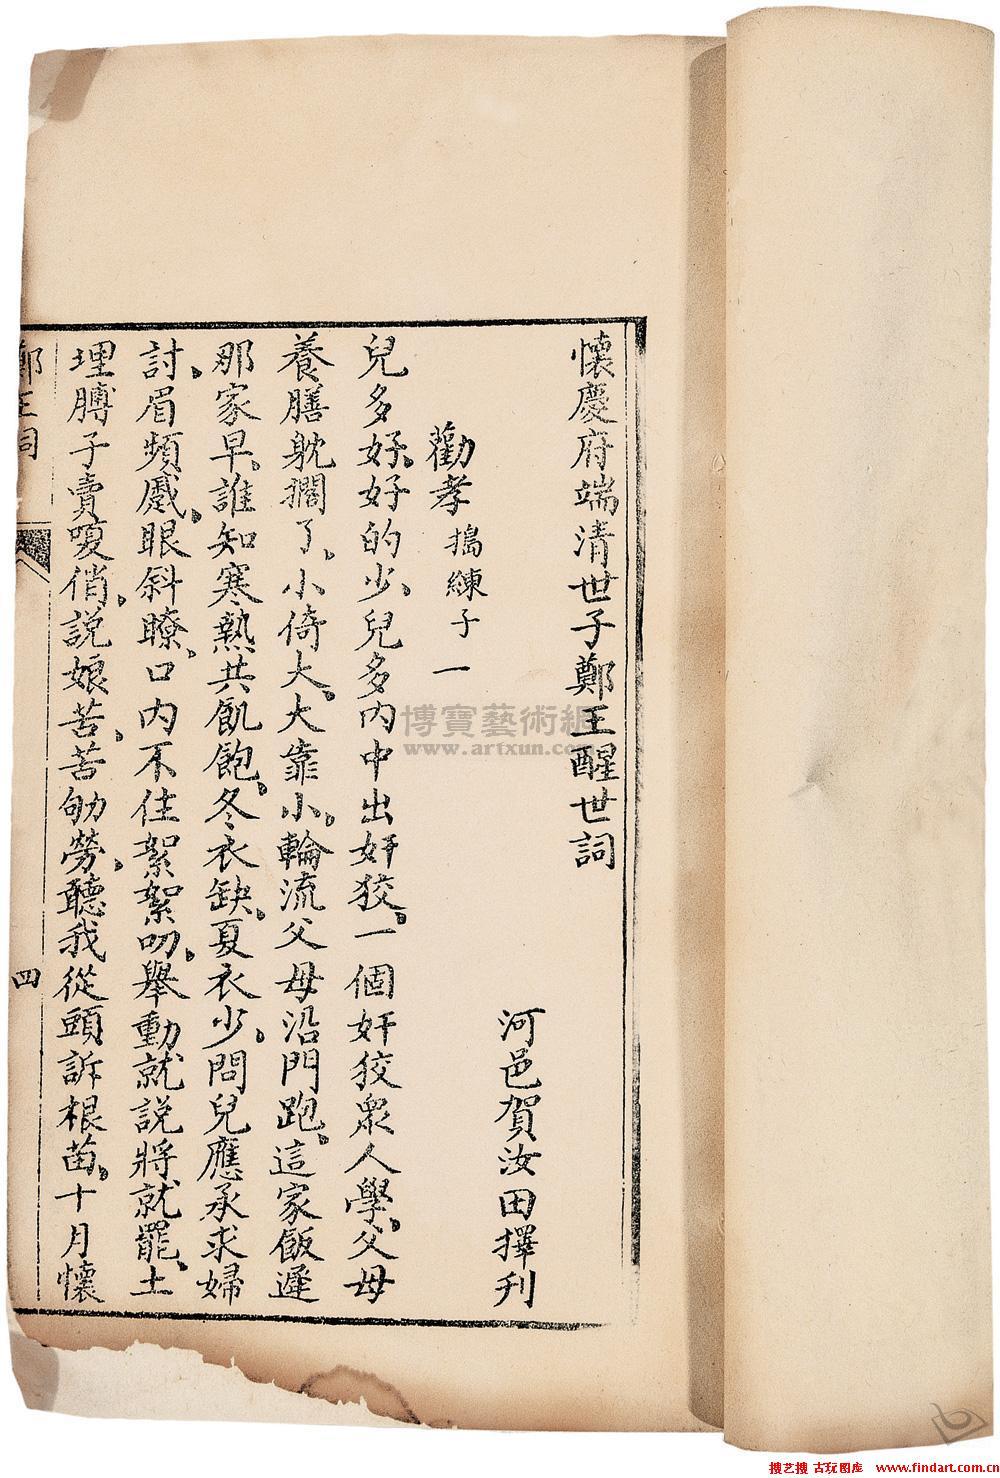 懷慶府端清世子鄭王醒世詞
河邑賀汝田擇刊
勸孝 搗練子一
兒多好、好的少、兒多内中出奸狡、一個奸狡衆人學、父母
養膳躭擱了、小倚大、大靠小、輪流父母沿門跑、這家飯遲
那家早、誰知寒熱共飢飽、冬衣缺、夏衣少、問兒應承求婦
討、眉頻蹙、眼斜瞭、口内不住絮絮叨、舉動就說將就罷、土
埋脖子賣嗄俏、說娘苦、苦劬勞、聽我從頭訴根苗、十月懷
鄭王詞
四
博寶藝術網
www.artxun.com
搜艺搜 古玩图库 www.findart.com.cn